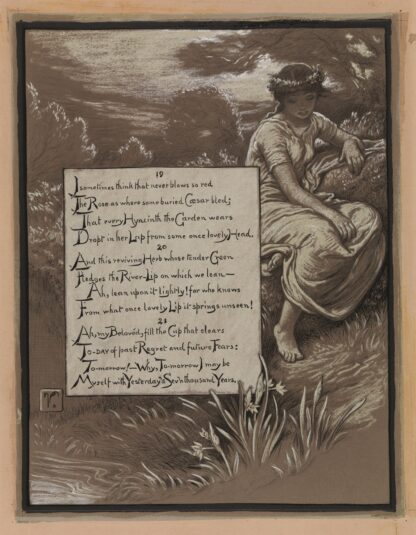 19
I sometimes think that never blows so red
The Rose as where some buried Cæsar bled;
That every Hyacinth the Garden wears
Dropt in her Lap from some once lovely Head.
20
And this reviving Herb whose tender Green
Fledges the River-Lip on which we lean—
Ah, lean upon it lightly! for who knows
From what once lovely Lip it springs unseen!
21
Ah, my Belovéd, fill the Cup that clears
To-day of past Regret and future Fears:
To-morrow!—Why, To-morrow I may be
Myself with Yesterday's Sev'n thousand Years.
V